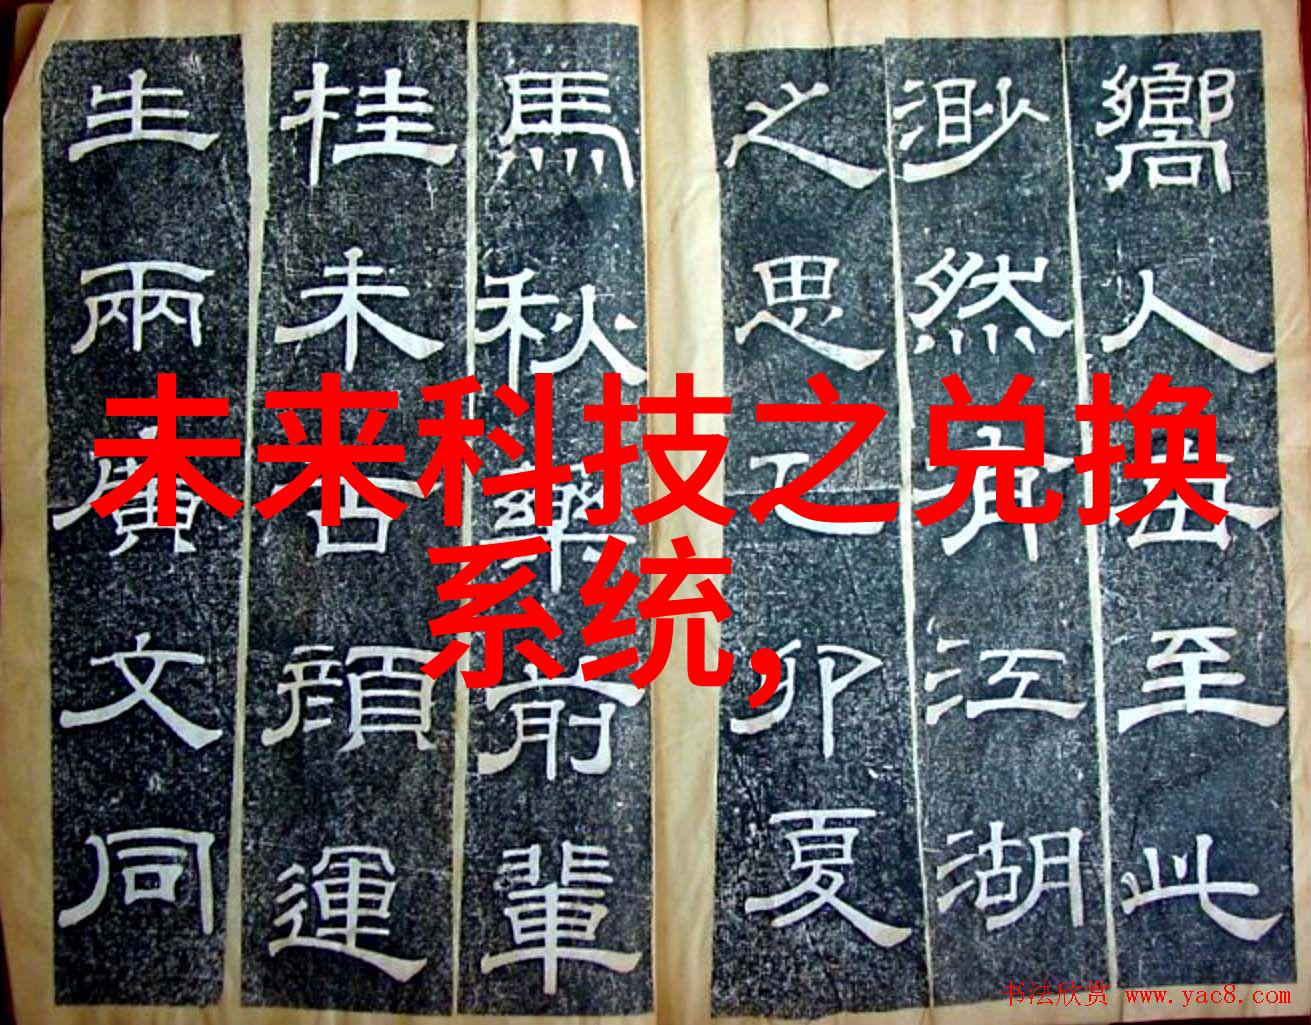 未来科技之兑换
系统,
嚮人至此
渺然有江湖
之思乙卯夏
馬秋藥前輩
桂未谷顔運
生兩廣文同
书法欣赏 www.yac8.com